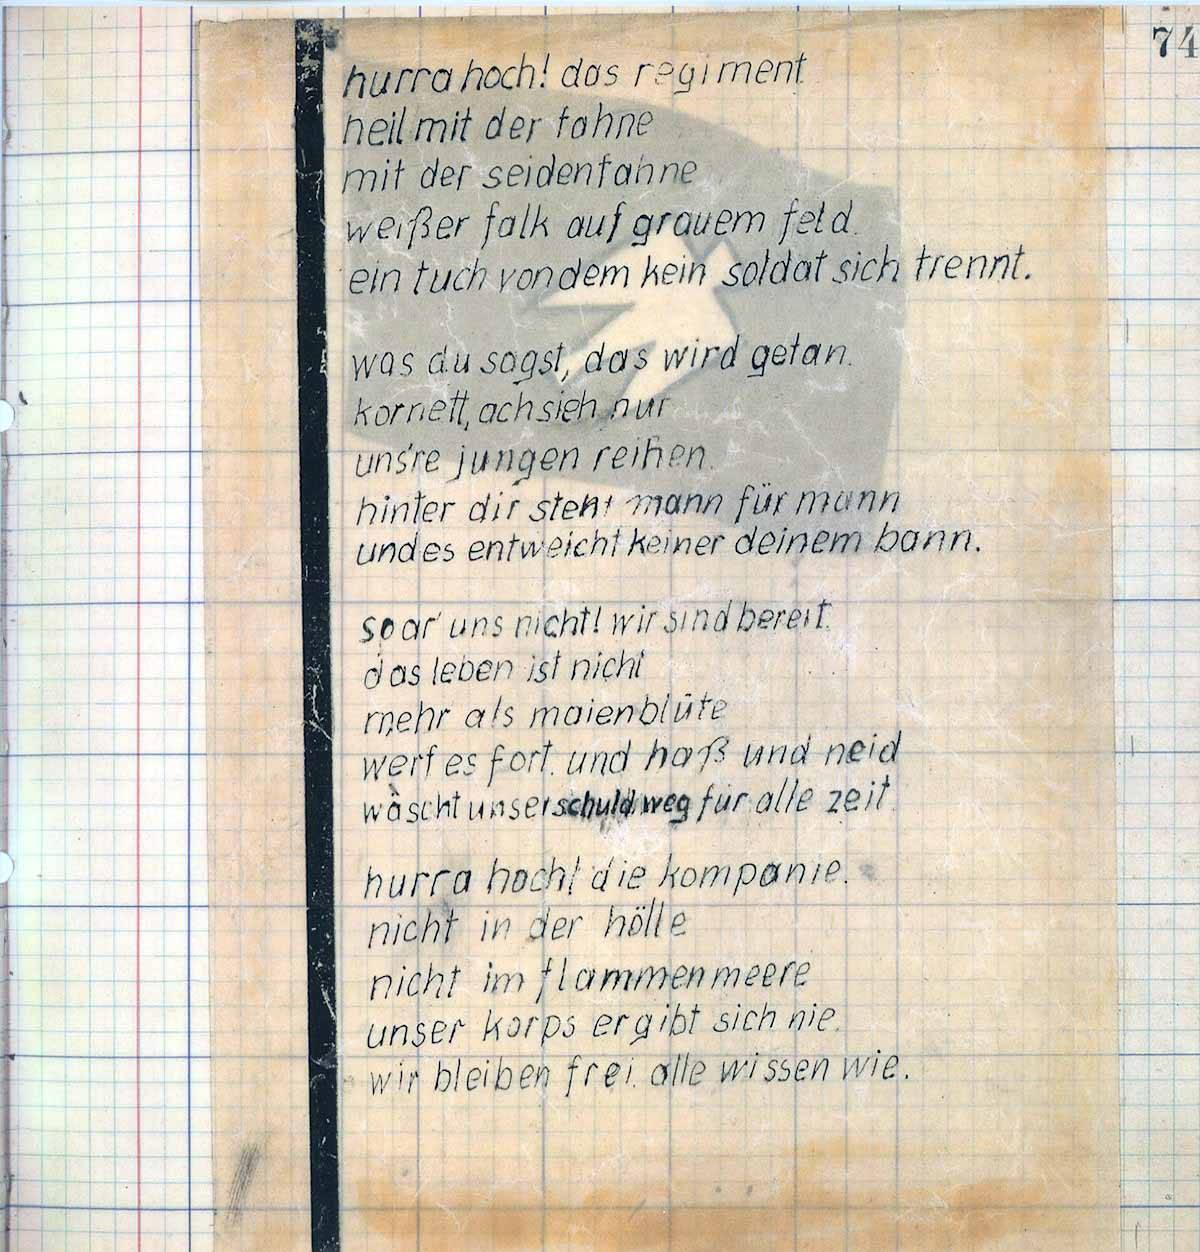 74
hurra hoch! das regiment
heil mit der fahne
mit der seidenfahne
weißer falk auf grauem feld.
ein tuch von dem kein soldat sich trennt.
was du sagst, das wird getan.
kornett, ach sieh nur
uns're jungen reihen.
hinter dir steht mann für mann
und es entweicht keiner deinem bann.
spar' uns nicht! wir sind bereit.
das leben ist nicht
mehr als maienblüte
werf es fort. und haß und neid
wäscht unser schuld weg für alle zeit.
hurra hoch! die kompanie.
nicht in der hölle
nicht im flammenmeere
unser korps ergibt sich nie.
wir bleiben frei. alle wissen wie.